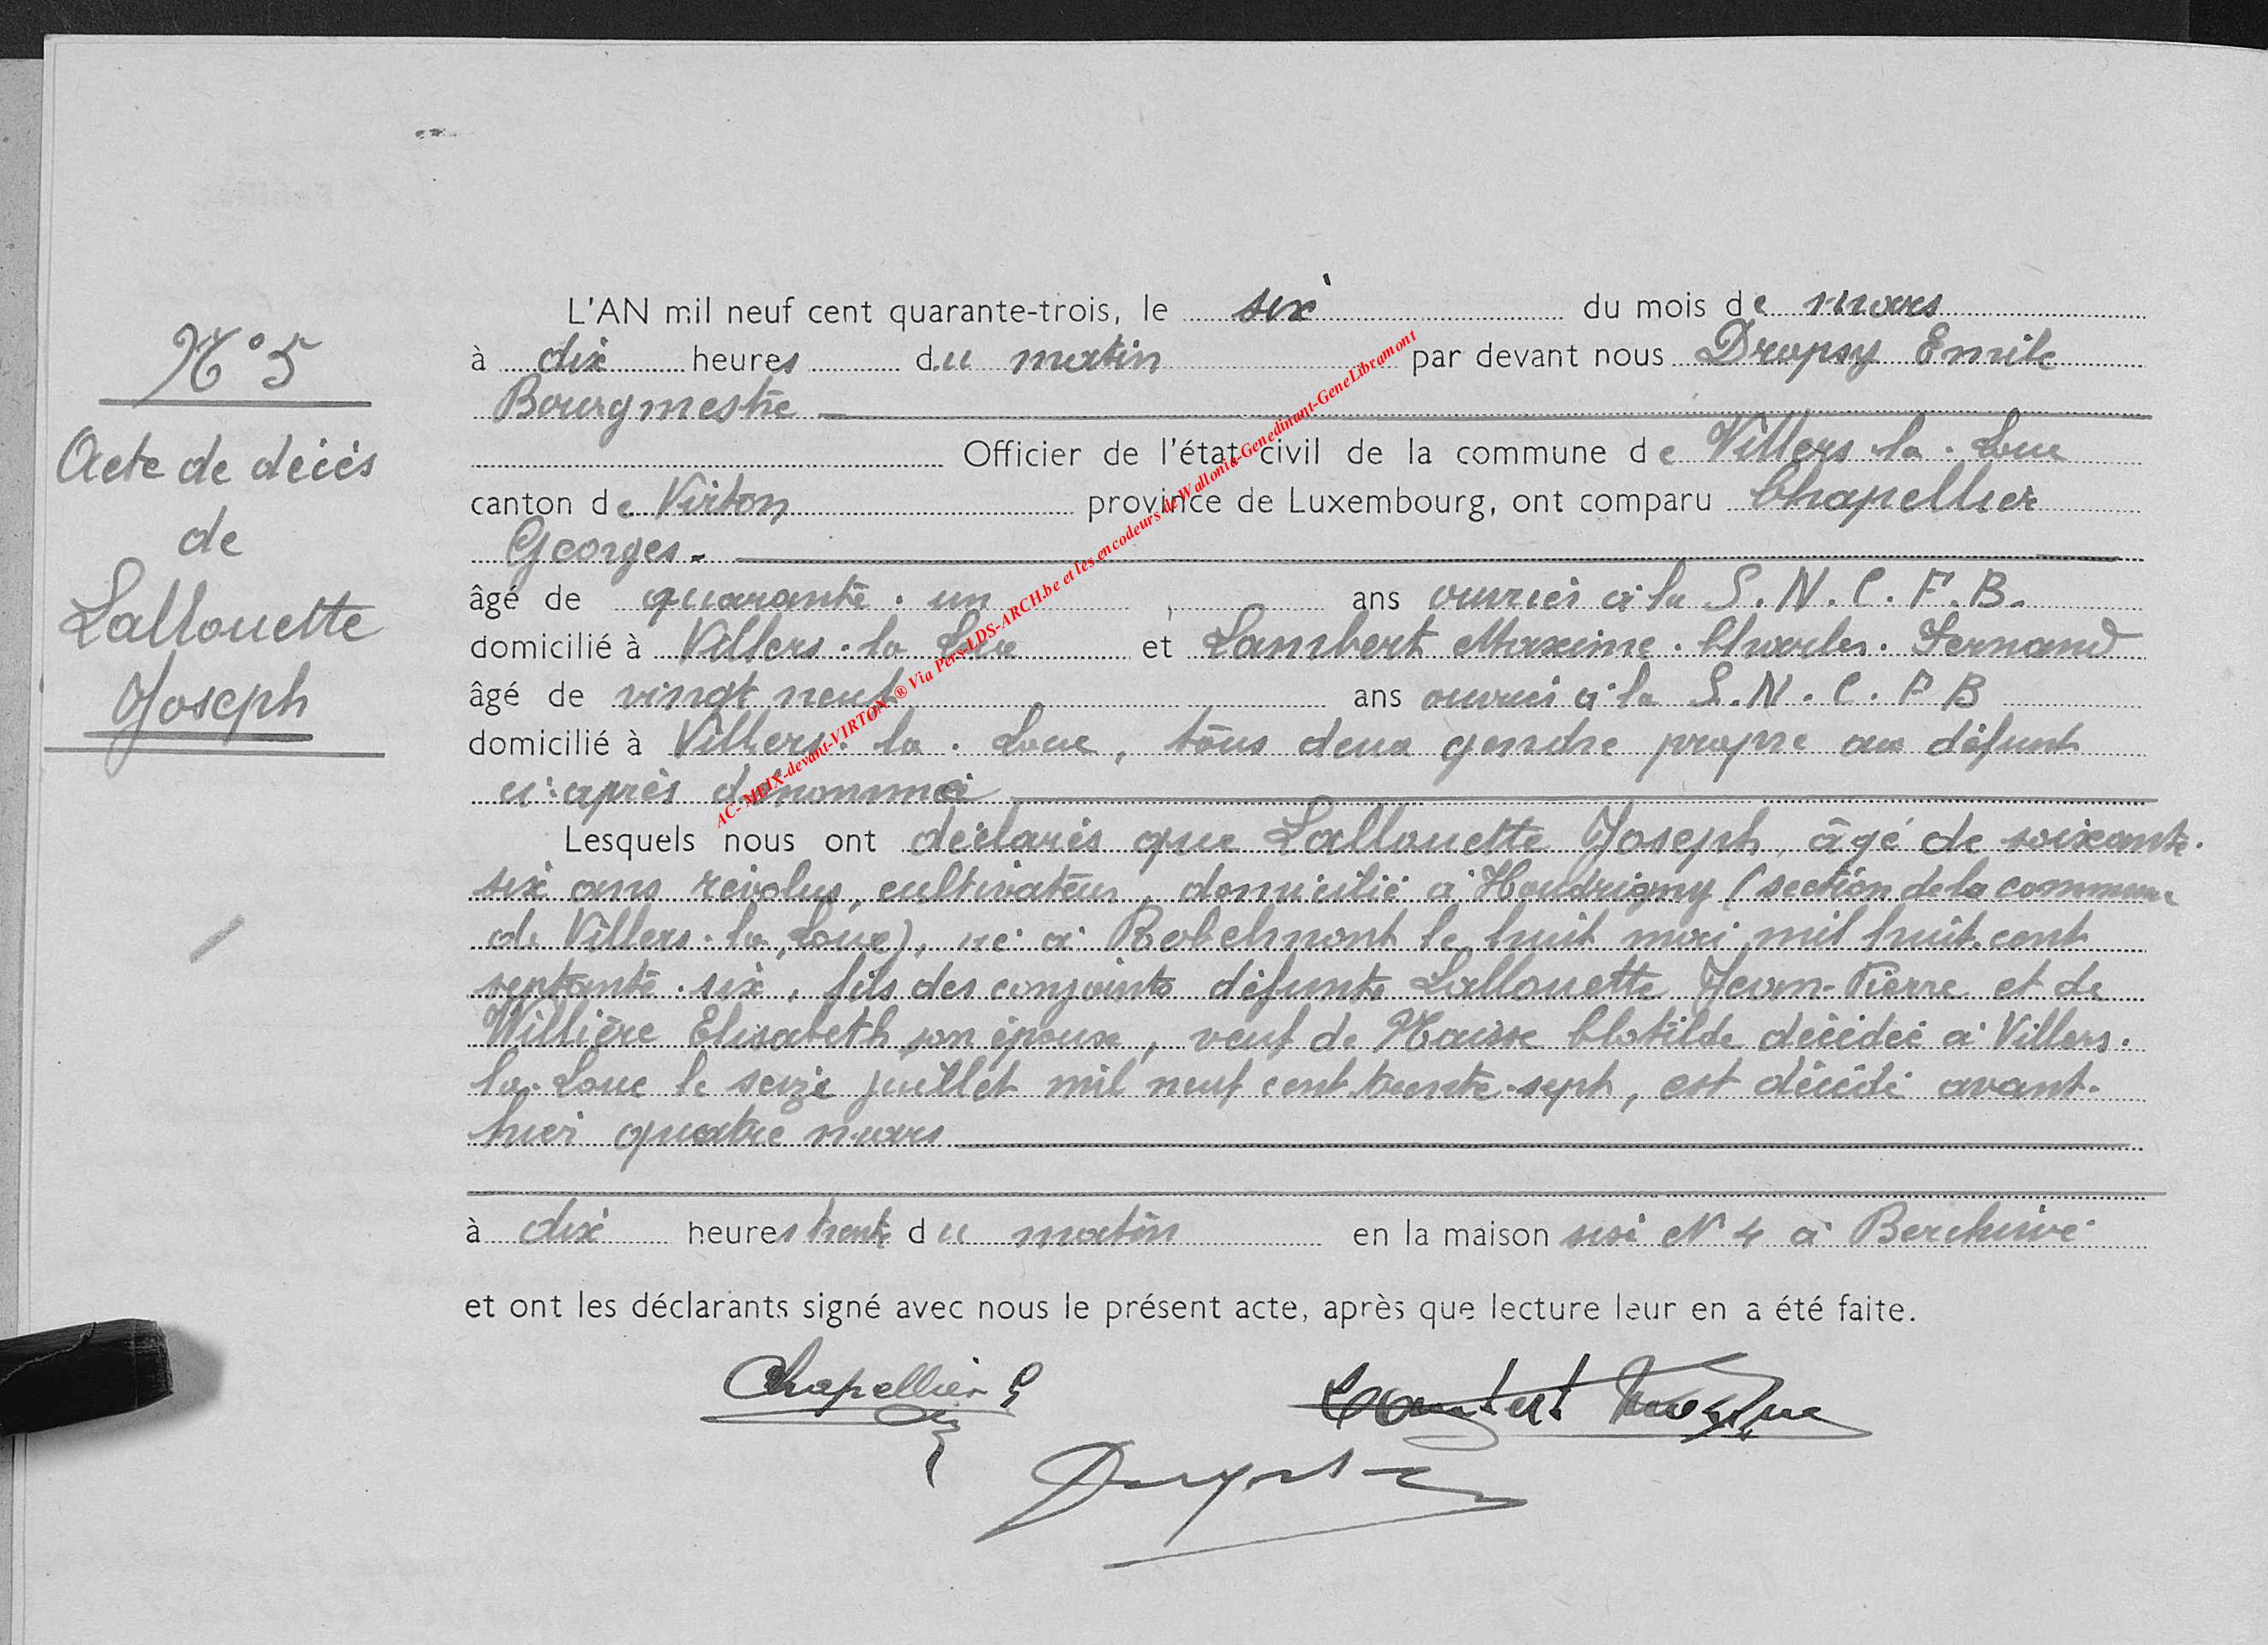 N° 5
Acte de décès
de
Lallouette
Joseph
L'AN mil neuf cent quarante-trois, le six du mois de mars
à dix heures du matin par devant nous Dropsy Emile
Bourgmestre
Officier de l'état civil de la commune de Villers-la-Loue
canton de Virton province de Luxembourg, ont comparu Chapellier
Georges.
âgé de quarante-un ans ouvrier à la S.N.C.F.B.
domicilié à Villers-la Loue et Lambert Maxime-Charles-Fernand
âgé de vingt neuf ans ouvrier à la S.N.C.F B
domicilié à Villers-la-Loue, tous deux gendre propre au défunt
ci-après dénommé
Lesquels nous ont déclarés que Lallouette Joseph, âgé de soixante-
six ans révolus, cultivateur, domicilié à Houdrigny (section de la commune
de Villers-la-Loue), né à Robelmont le huit mai mil huit cent
septante-six, fils des conjoints défunts Lallouette Jean-Pierre et de
Willière Elisabeth son épouse, veuf de Hausse Clotilde décédée à Villers-
la-Loue le seize juillet mil neuf cent trente-sept, est décédé avant-
hier quatre mars
à dix heures trente du matin en la maison sise N° 4 à Berchiwé
et ont les déclarants signé avec nous le présent acte, après que lecture leur en a été faite.
Chapellier G
Lambert Maxime
Dropsy
AC-MEIX-devant-VIRTON ® Via Pers-LDS-ARCH.be et les encodeurs de Wallonia-Genedinant-GeneLibramont